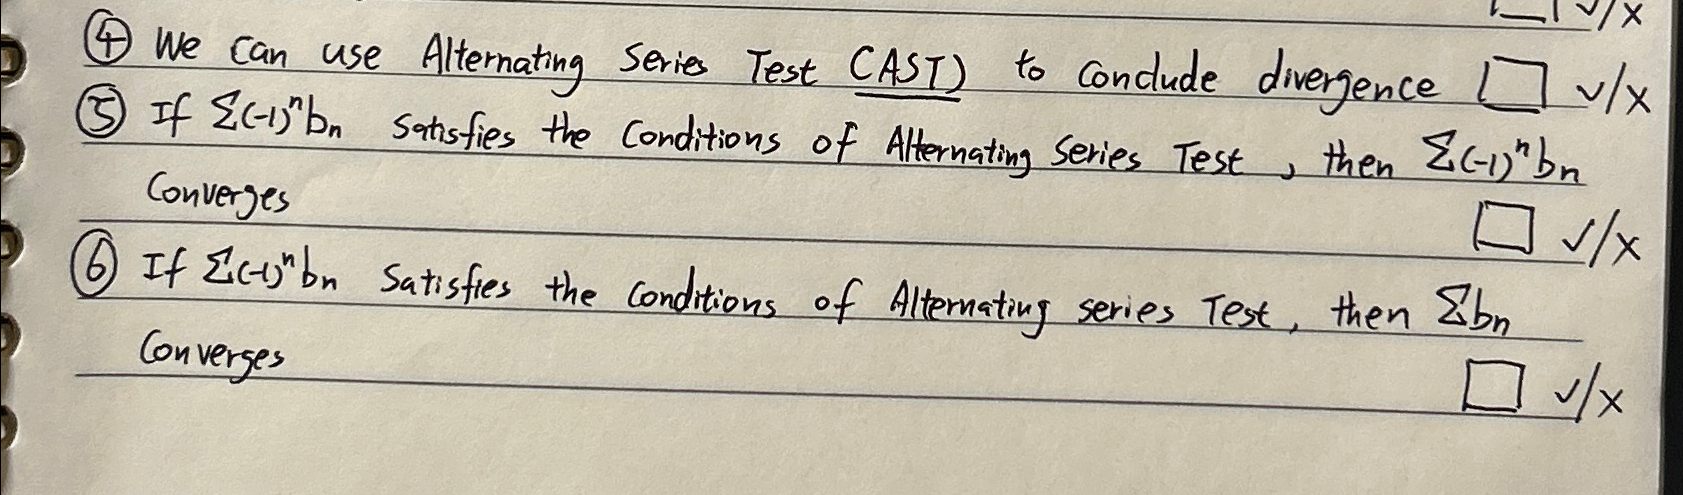 ✓/x
④ We can use Alternating Series Test (AST) to conclude divergence □ ✓/x
⑤ If Σ(-1)ⁿbₙ satisfies the conditions of Alternating Series Test, then Σ(-1)ⁿbₙ
converges
□ ✓/x
⑥ If Σ(-1)ⁿbₙ satisfies the conditions of Alternating series Test, then Σbₙ
converges
□ ✓/x